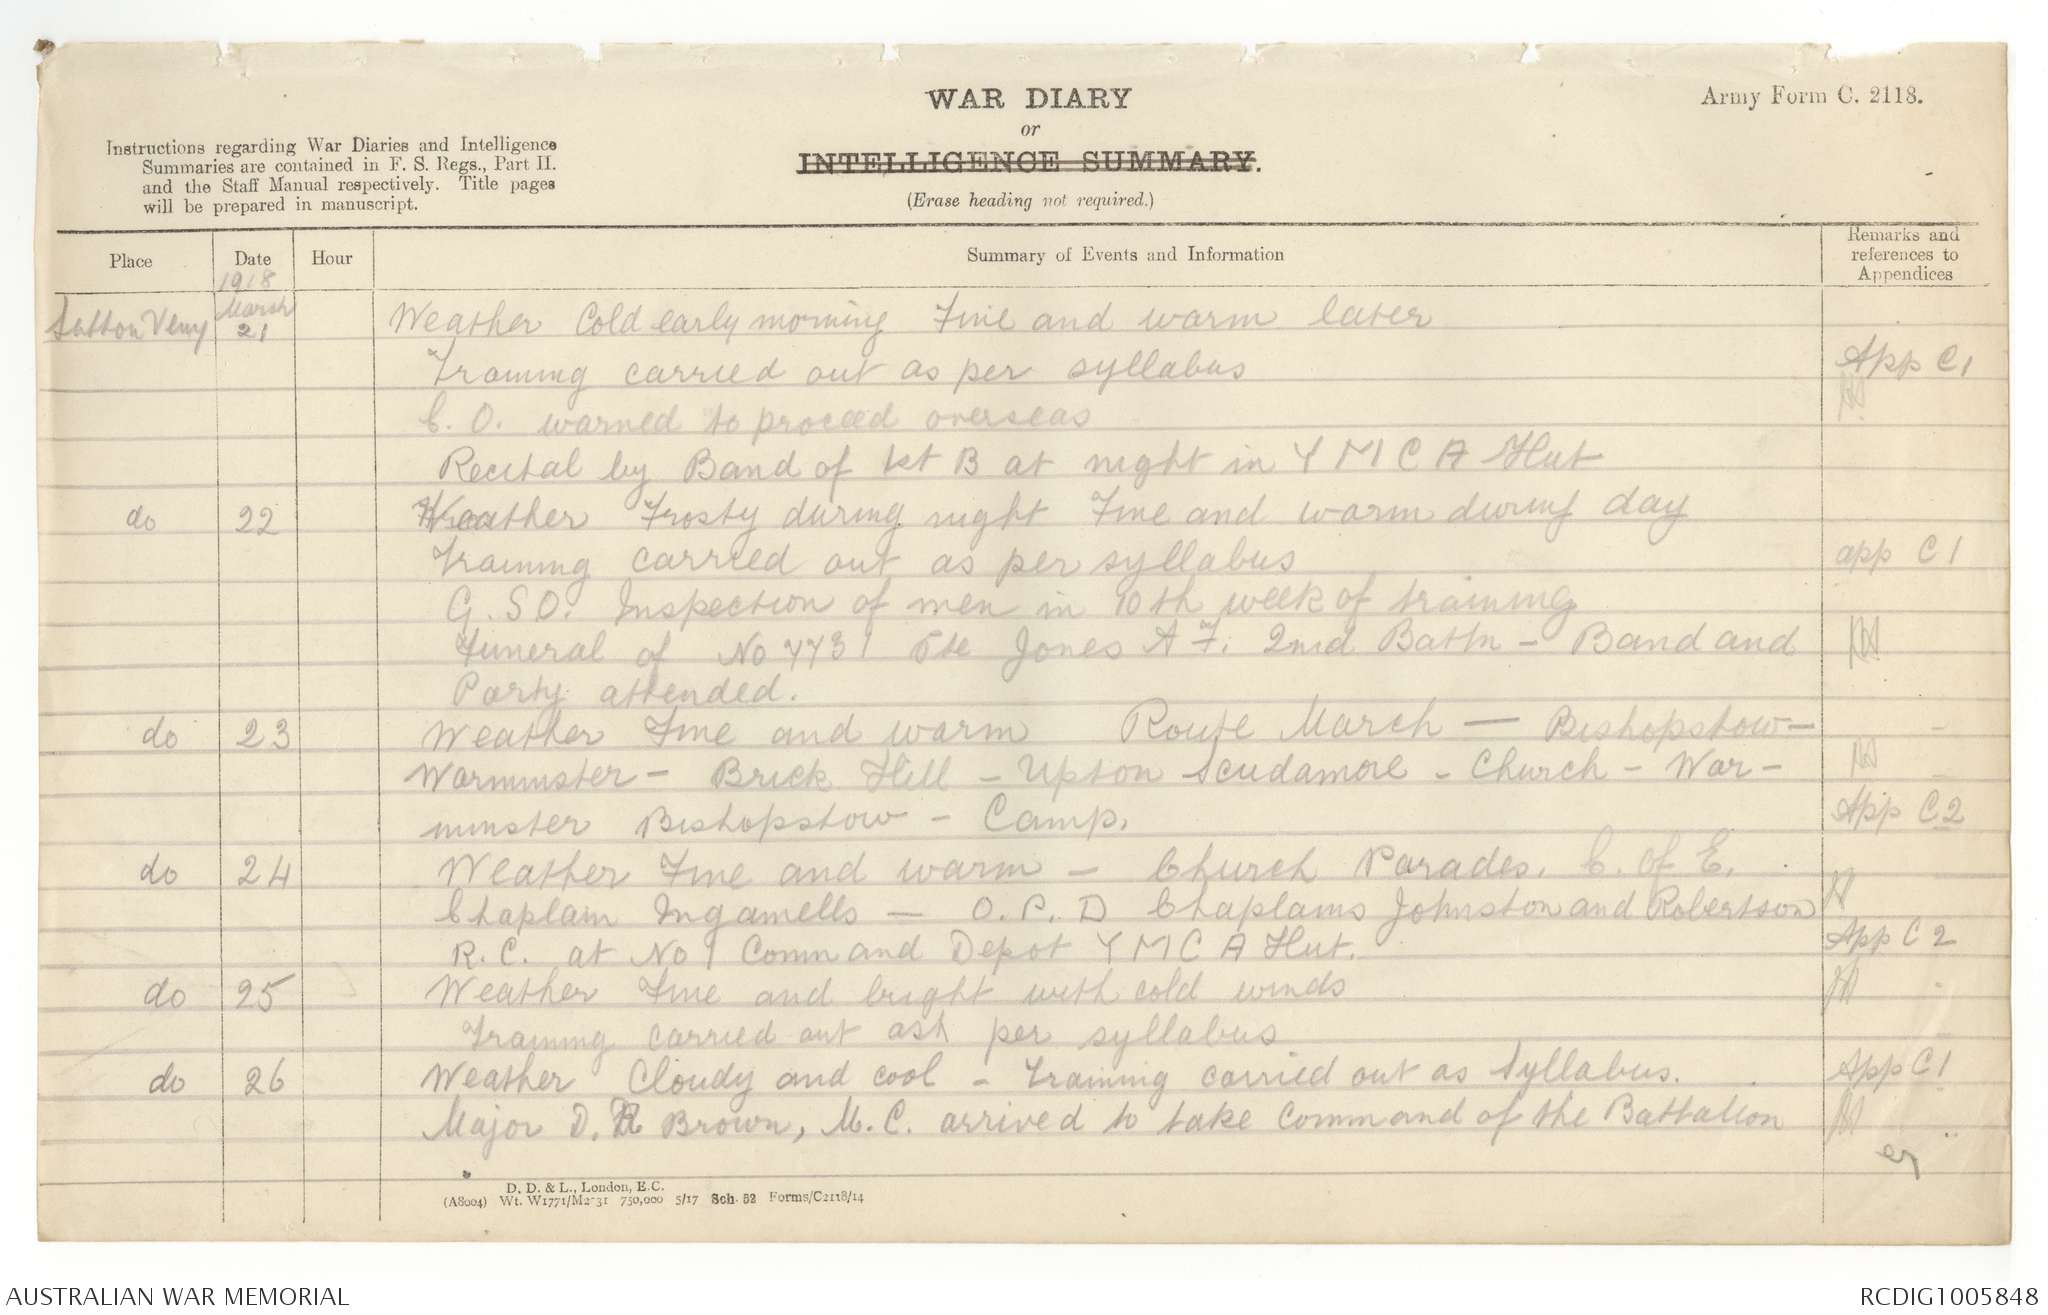 WAR DIARY
or
INTELLIGENCE SUMMARY.
(Erase heading not required.)
Army Form C. 2118.
Instructions regarding War Diaries and Intelligence
Summaries are contained in F. S. Regs., Part II.
and the Staff Manual respectively. Title pages
will be prepared in manuscript.
Place Date Hour Summary of Events and Information Remarks and references to Appendices
1918
Sutton Veny March 21 Weather Cold early morning Fine and warm later
Training carried out as per syllabus App C1
C. O. warned to proceed overseas
Recital by Band of 1st B at night in Y M C A Hut
do 22 Weather Frosty during night Fine and warm during day
Training carried out as per syllabus app C1
G. S O. Inspection of men in 10th week of training
Funeral of No 7731 Pte Jones A F. 2nd Battn - Band and
Party attended.
do 23 Weather Fine and warm Route March — Bishopstow -
Warminster - Brick Hill - Upton Scudamore - Church - War -
minster Bishopstow - Camp. App C2
do 24 Weather Fine and warm - Church Parades. C. of E.
Chaplain Ingamells — O. P. D Chaplains Johnston and Robertson
R. C. at No 1 Command Depot Y M C A Hut. App C 2
do 25 Weather Fine and bright with cold winds
Training carried out as per syllabus
do 26 Weather Cloudy and cool - Training carried out as Syllabus. App C1
Major D. R Brown, M. C. arrived to take command of the Battalion
D. D. & L., London, E.C.
(A8004) Wt. W1771/M2031 750,000 5/17 Sch. 52 Forms/C2118/14
AUSTRALIAN WAR MEMORIAL
RCDIG1005848